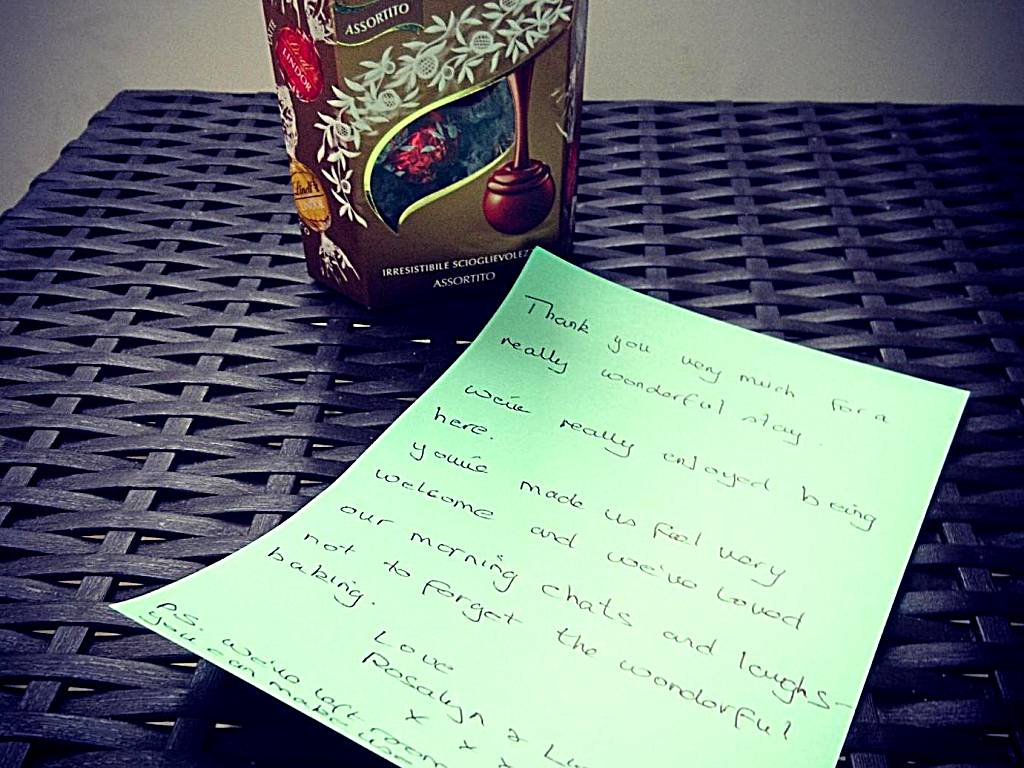 ASSORTITO
Lindt
LINDOR
Lindt
IRRESISTIBILE SCIOGLIEVOLEZ
ASSORTITO
Thank you very much for a
really wonderful stay.
We've really enjoyed being
here.
You've made us feel very
welcome and we've loved
our morning chats and laughs -
not to forget the wonderful
baking.
Love
Rosalyn &
x x x
P.S. we've left room
you can make use